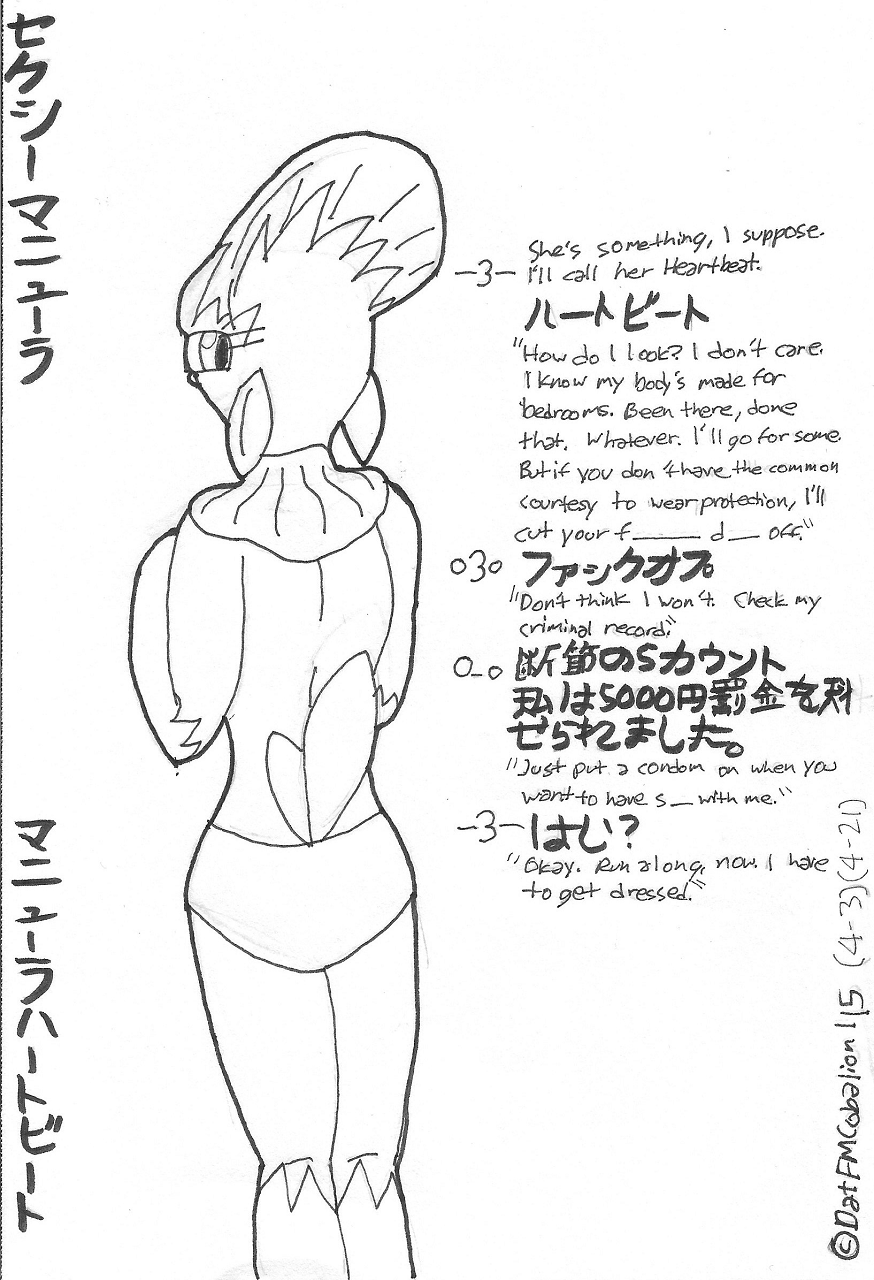 セクシーマニューラ
マニューラハートビート
-3-
She's something, I suppose.
I'll call her Heartbeat.
ハートビート
"How do I look? I don't care.
I know my body's made for
bedrooms. Been there, done
that. Whatever. I'll go for some.
But if you don't have the common
courtesy to wear protection, I'll
cut your f______ d__ off."
o3o
ファックオフ。
"Don't think I won't. Check my
criminal record."
O_o
断節の5カウント
私は5000円罰金を科
せられてました。
"Just put a condom on when you
want to have s_ with me."
-3-
はい?
"Okay. Run along, now. I have
to get dressed."
©DatFMCobalion115 (4-3)(4-21)